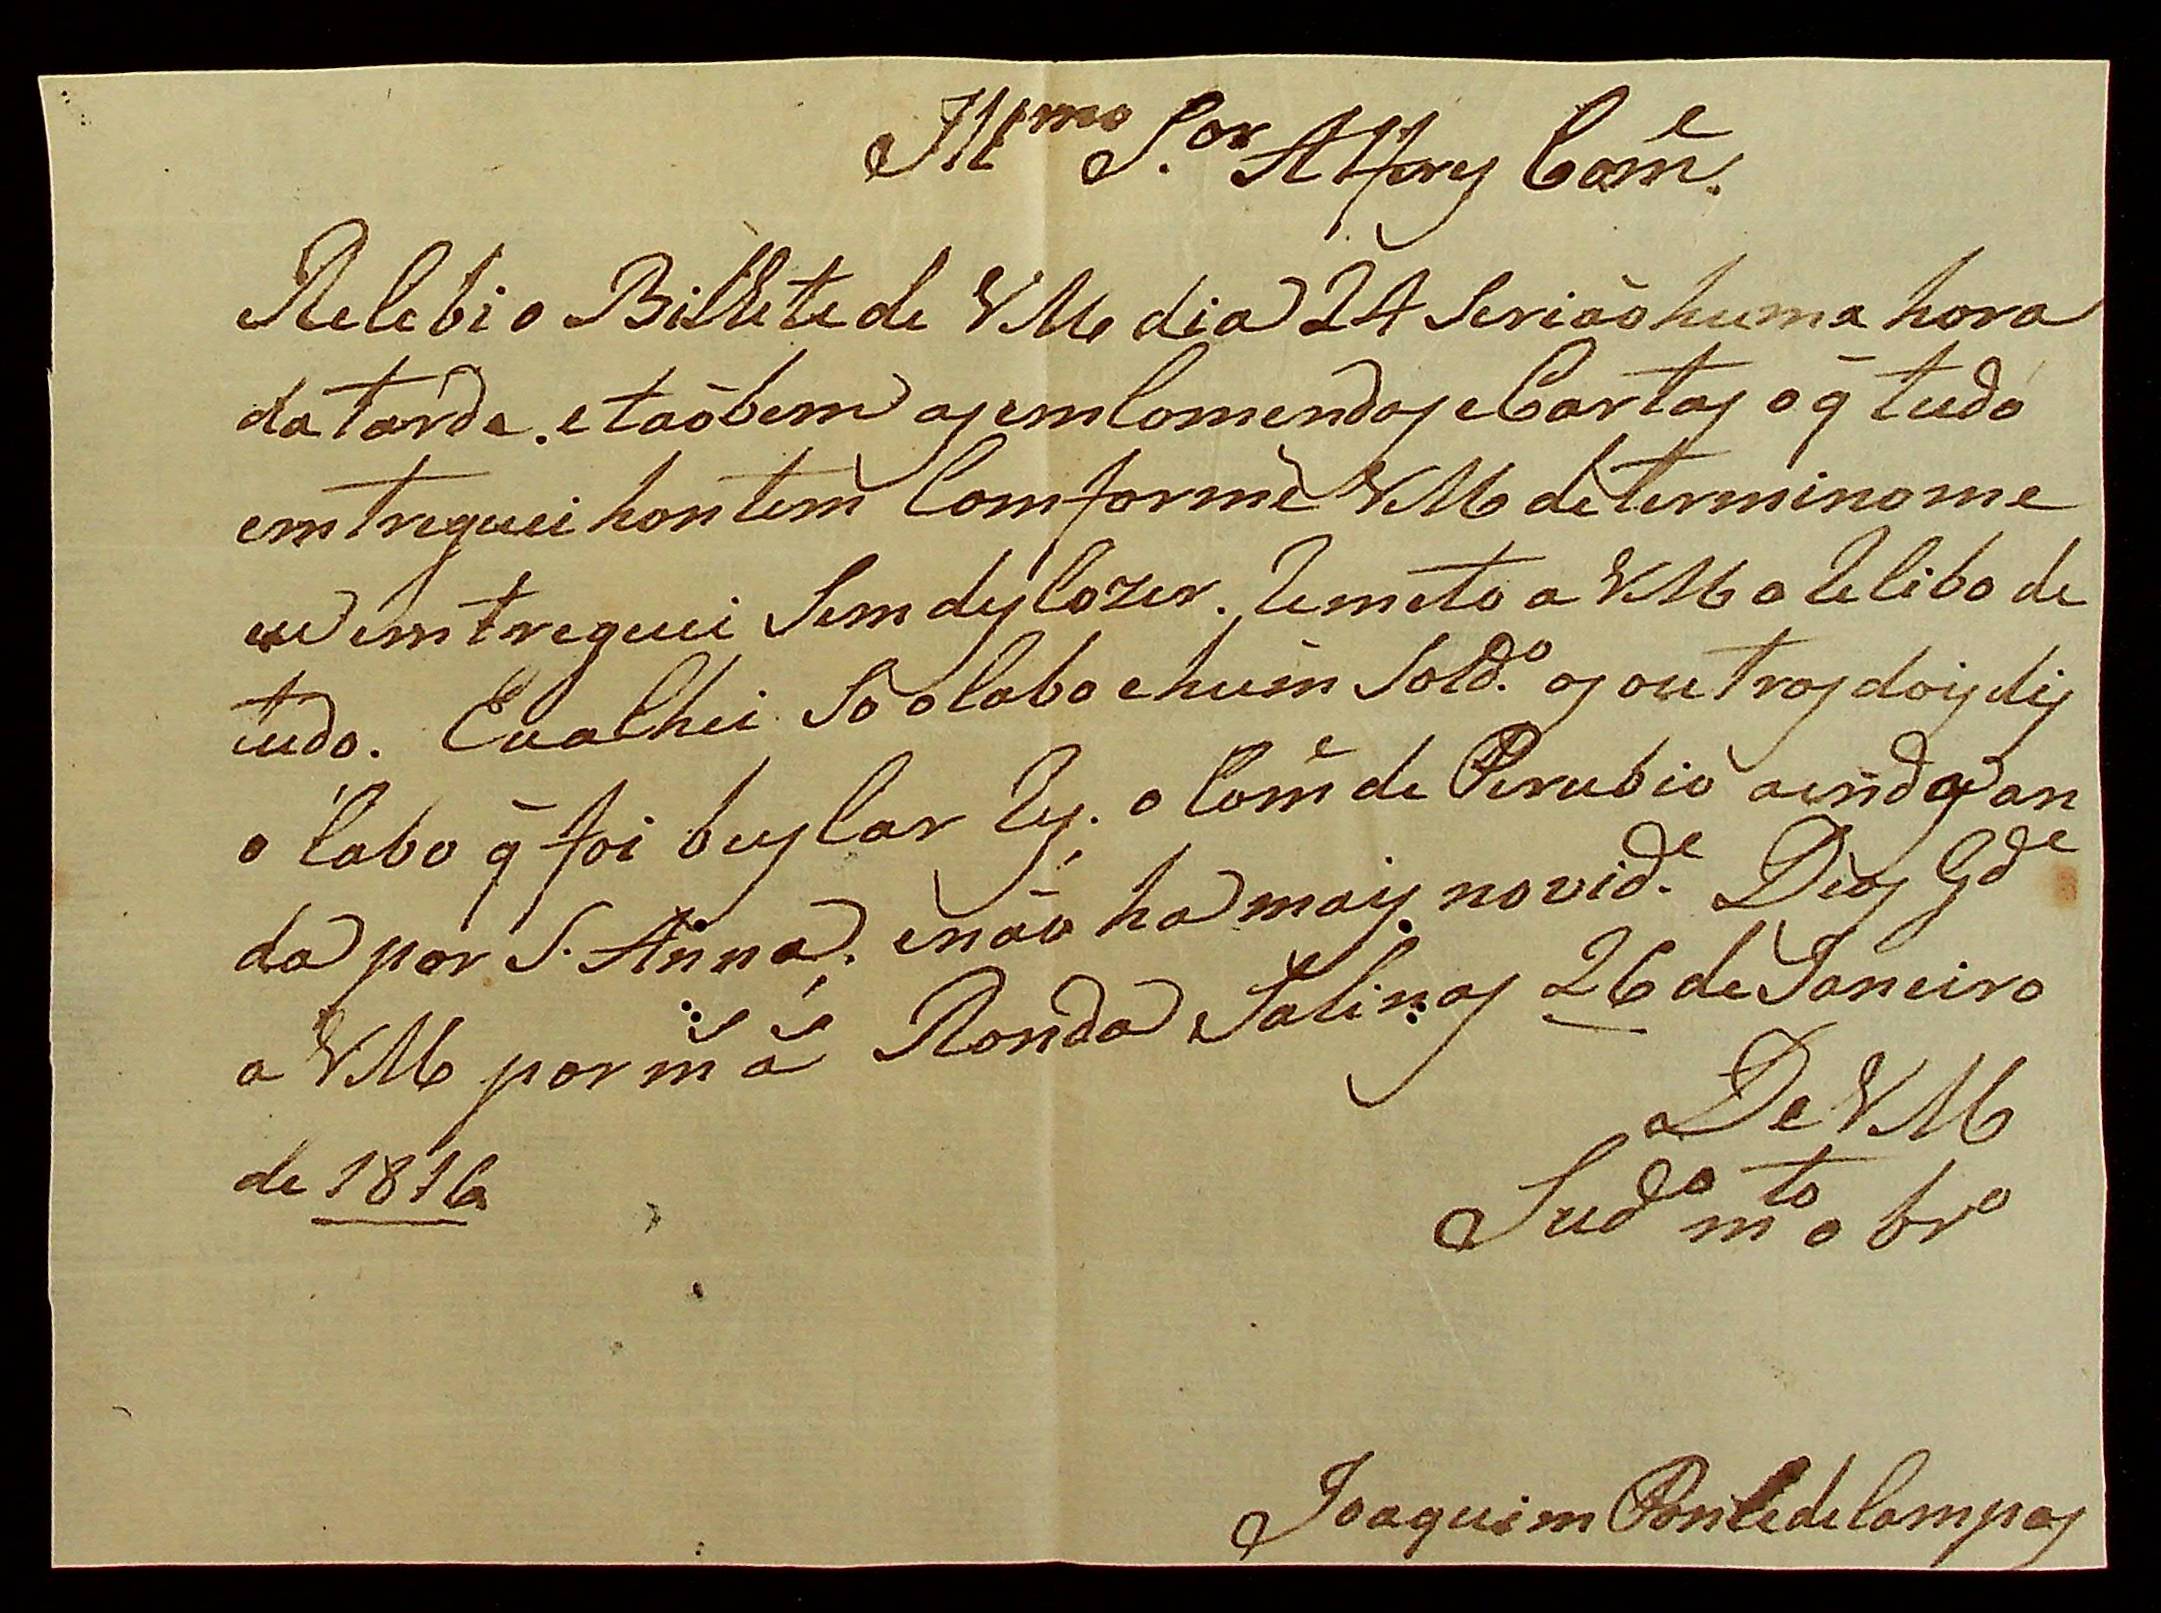 Illmo S.or Alferes Come.
Recebi o Bilhete de VM dia 24 Serião huma hora
da tarde. e taõbem as emComendas e Cartas o q̃ tudo
emtreguei hontem Comforme VM determinome
eu emtreguei Sem descozer. Remeto a VM o Recibo de
tudo. Eu achei So o Cabo e hum Sold.o os outros dois dis
o Cabo q̃ foi buscar Res. o Come de Perubio ainda an
da por S. Anna. e não ha mais novid.e Deos Gde
a VM por ms as Ronda Salinas 26 de Janeiro
de 1816
De VM
Sudo mto obro
Joaquim Ponte de Campos